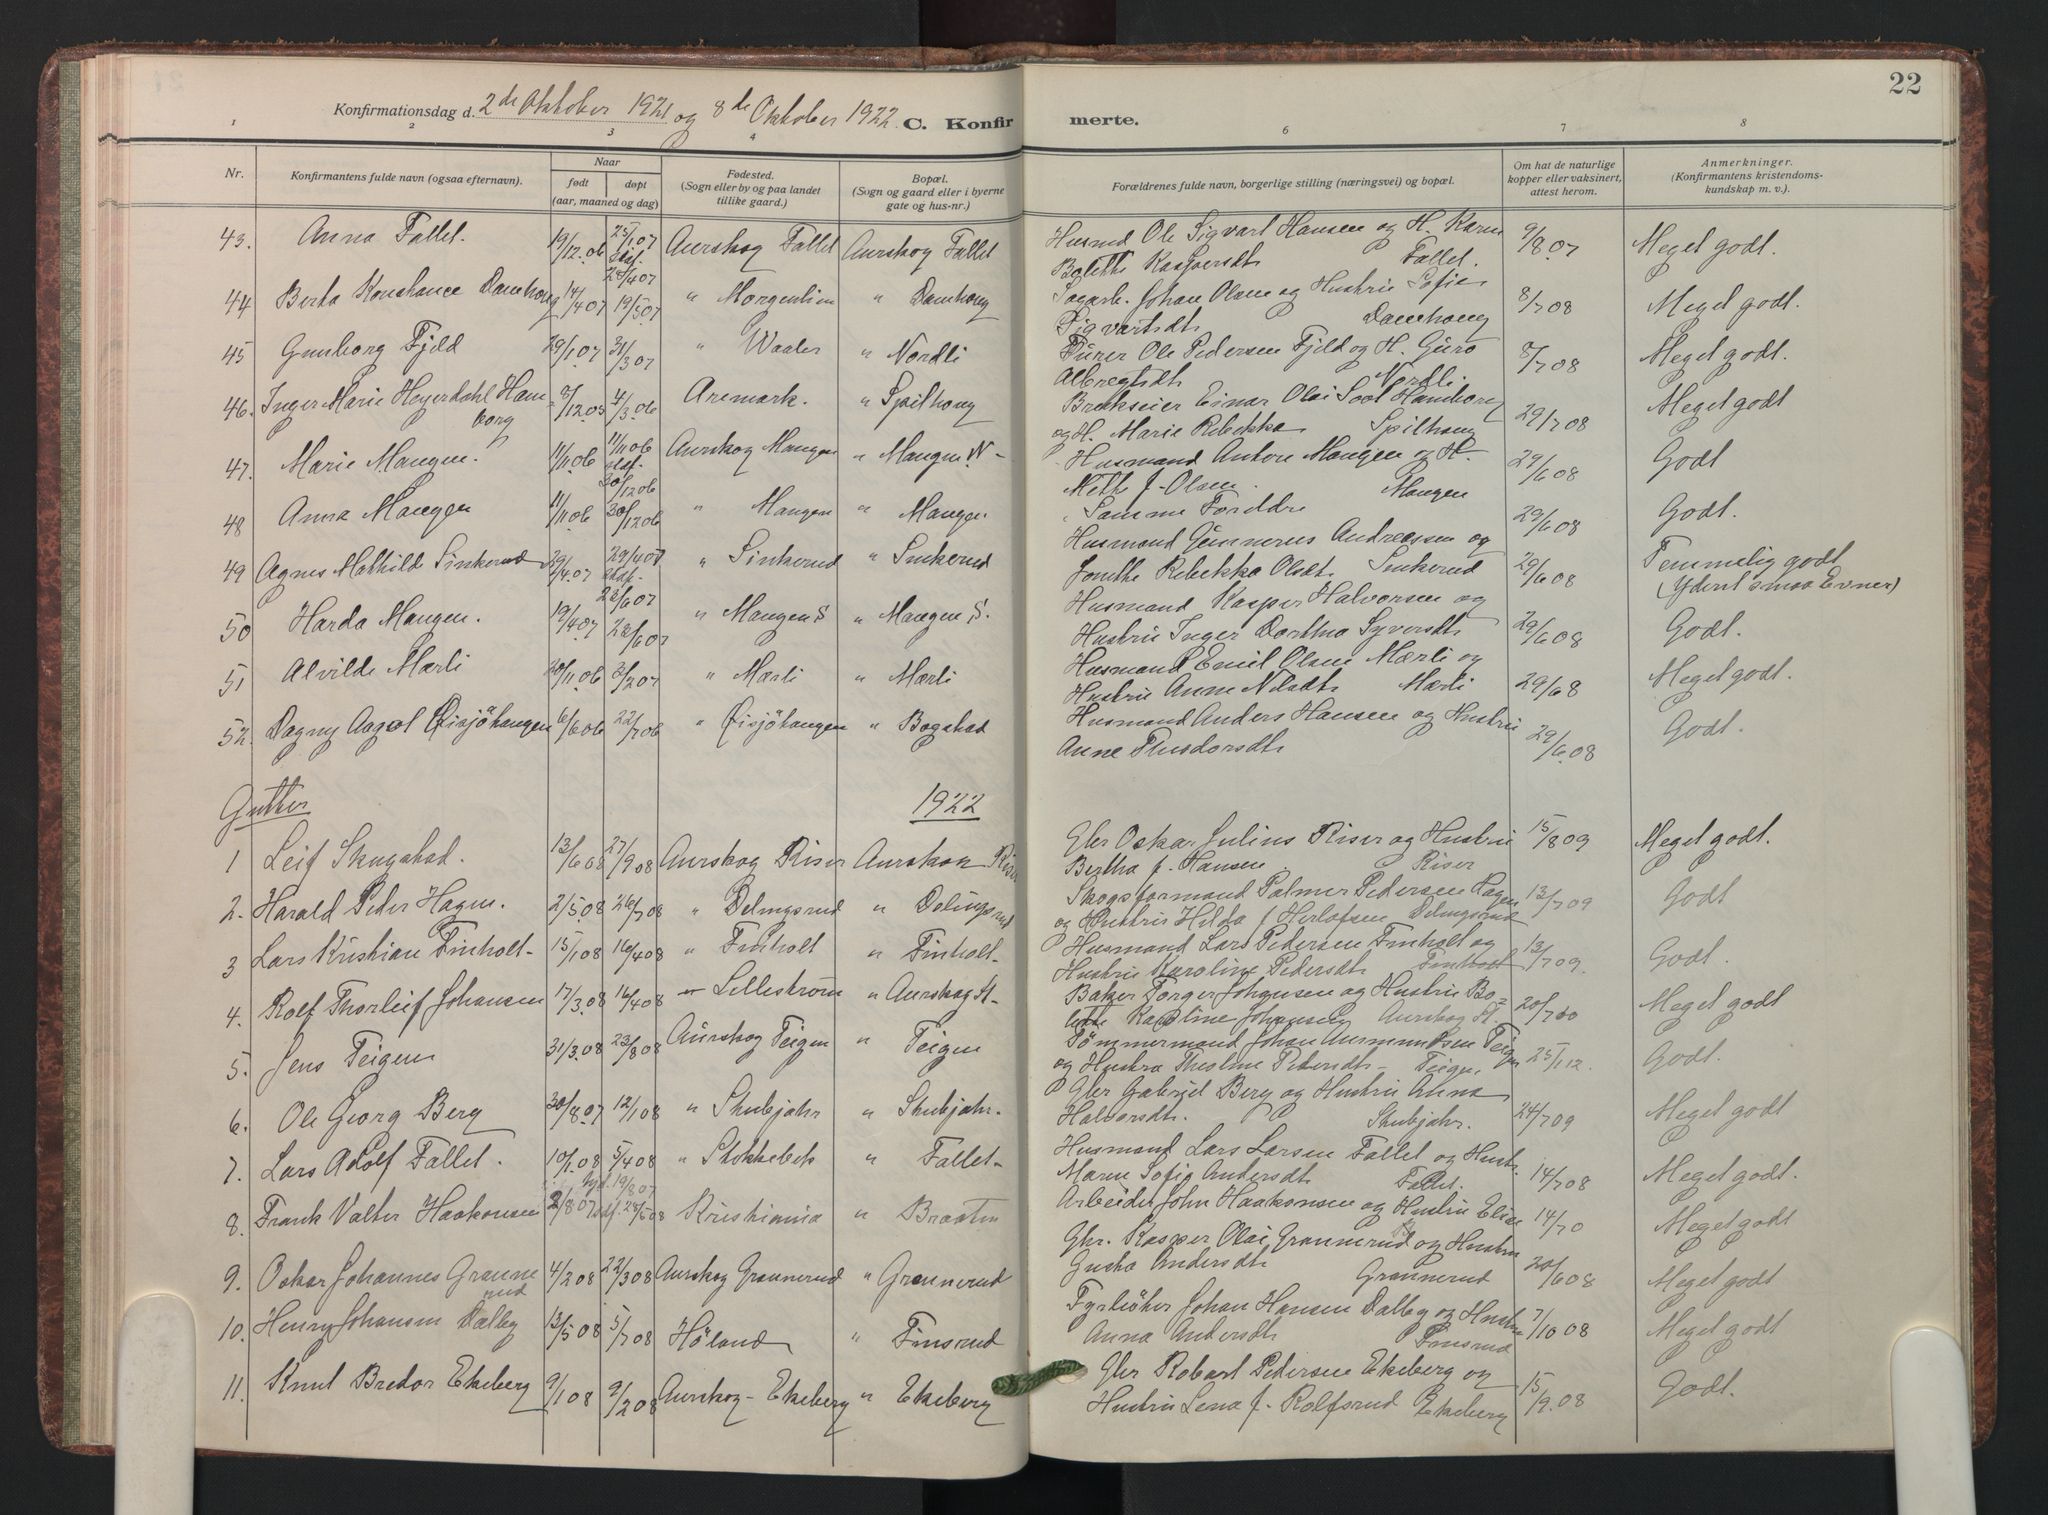 22
Konfirmationsdag d. 2de Oktober 1921 og 8de Oktober 1922. C. Konfirmerte.
1 2 3 4 6 7 8
Nr.
Konfirmantens fulde navn (ogsaa efternavn).
Naar
født døpt
(aar, maaned og dag)
Fødested.
(Sogn eller by og paa landet
tillike gaard.)
Bopæl.
(Sogn og gaard eller i byerne
gate og hus-nr.)
Forældrenes fulde navn, borgerlige stilling (næringsvei) og bopæl.
Om hat de naturlige
kopper eller vaksinert,
attest herom.
Anmerkninger.
(Konfirmantens kristendoms-
kundskap m. v.).
43. Anna Fallet. 19/12.06 25/1.07 Aurskog Fallet Aurskog Fallet Husmd Ole Sigvart Hansen og H. Karen 9/8.07 Meget godt.
Bolette Kaspersdt Fallet.
44 Berta Konstance Damhoug 14/4.07 19/5.07 " Morgenlien " Damhoug Sagarb. Johan Olsen og Hustru Sofie 8/7.08 Meget godt.
Sigvartsdt Damhoug
45 Gunborg Fjeld 29/1.07 31/3.07 " Waaler " Nordli Ole Pedersen Fjeld og H. Guro 8/7.08 Meget godt.
Albregtsdt Nordli.
46. Inger Marie Heyerdahl Ham= 4/3.06 Aremark. " Spilhoug Brukseier Einar Olai Hamborg 29/7.08 Meget godt
borg og H. Marie Rebekka Spilhoug
47. Marie Mangen. 11/11.06 30/12.06 Aurskog Mangen " Mangen N- Husmand Anton Mangen og H. 29/6.08 Godt
Mathe f. Olsen. Mangen
48 Anna Mangen 11/11.06 30/12.06 " Mangen " Mangen. Samme Forældre 29/6.08 Godt.
49 Agnes Mathilde Sinkerud 29/4.07 29/4.07 " Sinkerud " Sinkerud Husmand Gunnerus Andreassen og 29/6.08 Temmelig godt
Rebekka Olsdt Sinkerud (Yderst smaa Evner)
50 Harda Mangen. 19/4.07 22/6.07 " Mangen S " Mangen S. Husmand Kasper Halvorsen og 29/6.08 Godt.
Hustru Inger Dorthea Syversdt
51 Alvilde Mærli 30/11.06 3/2.07 " Mærli " Mærli Husmand Emil Olsen Mærli og 29/6 8 Meget godt.
Hustru Anne Nilsdt Mærli
52. Dagny Aagot Øisjöhangen 6/6.06 22/7.06 " Øisjöhangen " Bogstad Husmand Anders Hansen og Hustru 29/6.08 Godt.
Anne Theodorsdt
Gutter 1922
1 Leif Skugstad. 13/6.08 27/9.08 Aurskog Riser Aurskog Riser Gbr Oskar Julius Riser og Hustru 15/8.09 Meget godt.
Bertha f. Hansen Riser
2. Harald Peder Hagen. 2/5.08 26/7.08 " Delingsrud " Delingsrud Skogsformand Palmer Pedersen Hagen 13/7.09 Godt
og Hustru Hilda f. Herlofsen Delingsrud
3 Lars Kristian Finholt- 15/1.08 16/4.08 " Finholt " Finholt- Husmand Lars Pedersen Finholt og 13/7.09. Godt.
Hustru Karoline Pedersdt Finholt
4. Rolf Thorleif Johansen 17/3.08 16/4.08 " Lillestrøm " Aurskog St- Baker Torger Johansen og Hustru Bo= Meget godt
lette Karoline Johansen Aurskog St.
5. Jens Teigen 31/3.08 23/8.08 Aurskog Teigen " Teigen Tømmermand Johan Aurmundsen Teigen 25/1 12. Godt.
og Hustru Pedersdt- Teigen.
6. Ole Georg Berg 30/8.07 12/1.08 " Skubjahr " Skubjahr- Gbr Gabriel Berg og Hustru Anna 24/7.09 Meget godt
Halvorsdt. Skubjahr.
7. Lars Adolf Fallet. 10/1.08 5/4.08 " Stokkebæk " Fallet- Husmand Lars Larsen Fallet og Hust. 14/7.08 Meget godt.
Maren Sofie Andersdt Fallet.
8. Frank Valter Haakonsen 2/8.07 Kristiania " Braaten Arbeider John Haakonsen og Hustru Elise 14/7.0 Meget godt
9. Oskar Johannes Granne 4/2.08 22/3.08 Aurskog Grannerud " Grannerud Gbr. Kasper Olai Grannerud og Hustru 20/6.08 Meget godt
rud Gusta Andersdt Grannerud
10. Henry Johansen Dalby 13/5.08 5/7.08 Höland " Finsrud Fyrbøter Johan Hansen Dalby og Hustru 7/10.08 Meget godt
Anna Andersdt Finsrud
11. Knut Bredor Ekeberg 9/1.08 9/2.08 Aurskog- Ekeberg " Ekeberg Gbr Robart Pedersen Ekeberg og 15/9.08 Godt.
Hustru Lena f. Rolfsrud Ekeberg